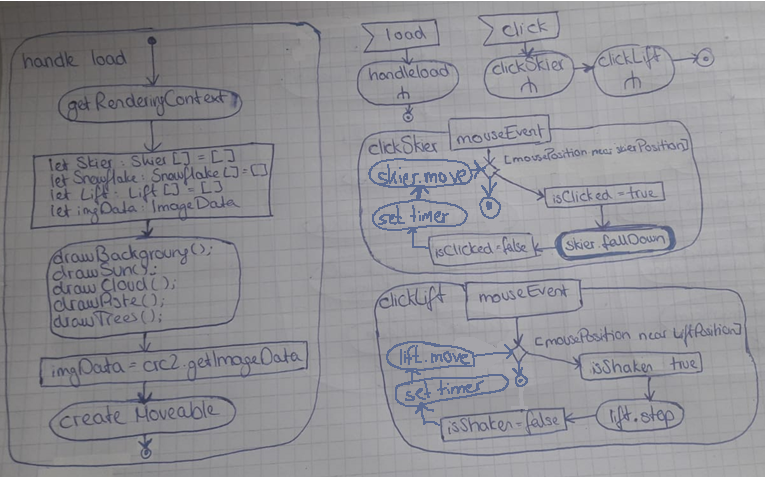 handle load
getRenderingContext
let Skier : Skier[] = []
let Snowflake : Snowflake[] = []
let Lift : Lift[] = []
let imgData : ImageData
drawBackgroung();
drawSun();
drawCloud();
drawPiste();
drawTrees();
imgData = crc2.getImageData
create Moveable
load
handleload
click
clickSkier
clickLift
clickSkier
mouseEvent
[mousePosition near skierPosition]
skier.move
isClicked = true
set timer
isClicked = false
skier.fallDown
clickLift
mouseEvent
[mousePosition near LiftPosition]
lift.move
isShaken true
set timer
isShaken = false
lift.stop